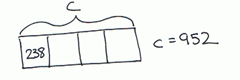 C
238
c = 952